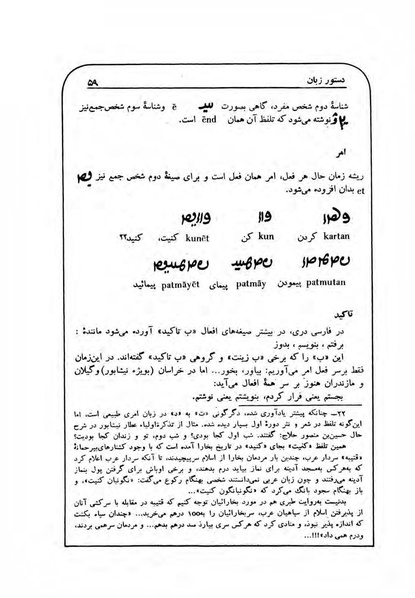 دستور زبان ۵۹
شناسهٔ دوم شخص مفرد، گاهی بصورت ē وشناسهٔ سوم شخص‌جمع‌نیز
نوشته می‌شود که تلفظ آن همان ēnd است.
امر
ریشه زمان حال هر فعل، امر همان فعل است و برای صیغهٔ دوم شخص جمع نیز
ēt بدان افزوده می‌شود.
kartan کردن kun کن kunēt کنیت، کنید۲۲
patmutan پیمودن patmāy پیمای patmāyēt پیمائید
تاکید
در فارسی دری، در بیشتر صیغه‌های افعال «ب تاکید» آورده می‌شود مانند:
برفتم ، بنویسم ، بدوز
این «ب» را که برخی «ب زینت» و گروهی «ب تاکید» گفته‌اند. در این‌زمان
فقط برسر فعل امر می‌آوریم: بیاور، بخور... اما در خراسان (بویژه نیشابور) وگیلان
و مازندران هنوز بر سر همهٔ افعال می‌آید:
بجستم یعنی فرار کردم، بنویشتم یعنی نوشتم.
۲۲ـ چنانکه پیشتر یادآوری شده، دگرگونی «ت» به «د» در زبان امری طبیعی است، اما
این‌گونه تلفظ در شعر و نثر دورهٔ اول بسیار دیده شده. مثال از تذکرةالاولیاء عطار نیشابور در شرح
حال حسین‌بن منصور حلاج: گفتند. شب اول کجا بودی؟ و شب دوم، تو و زندان کجا بودیت؟
همین تلفظ «کنیت» بجای «کنید» در تاریخ بخارا آمده است که با وجود کشتارهای‌بیرحمانهٔ
«قتیبه» سردار عرب، چندین بار مردمان بخارا از اسلام سرپیچیدند، تا آنکه سردار عرب اعلام کرد
که به‌هرکس به‌مسجد آدینه برای نماز بیاید درم بدهند، و برخی اوباش برای گرفتن پول بنماز
آدینه می‌رفتند و چون زبان عربی نمی‌دانستند شخصی بهنگام رکوع می‌گفت: «نگونیان کنیت»، و
باز بهنگام سجود بانگ می‌کرد که «نگونیانگون کنیت»...
بدنیست به‌روایت طبری هم در مورد بخارائیان توجه کنیم که قتیبه در مقابله با سرکشی آنان
از پذیرفتن اسلام از سپاهیان عرب، سربخارائیان را به‌۱۰۰ درهم می‌خرید... «چندان سپاه بکشت
که اندازه پذیر نبود، و منادی کرد که هرکس سری بیارد صد درهم بدهم... و مردمان سرهمی بردند،
ودرم همی داد»!!!...